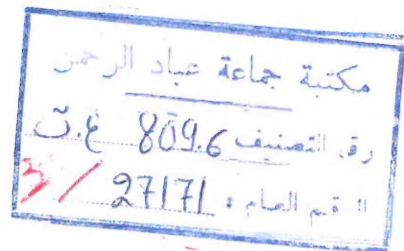 مكتبة جماعة عباد الرحمن
رقم التصنيف 809.6 غ.ت
الرقم العام : 27171 / 3